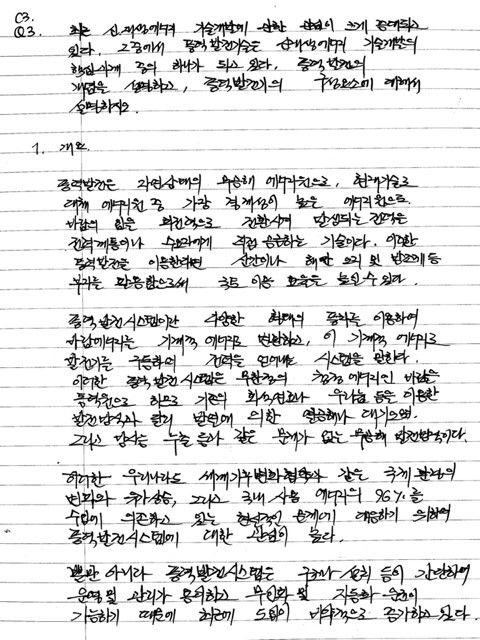 C3.
Q3. 최근 신재생에너지 기술개발에 대한 관심이 크게 증대되고
있다. 그중에서 풍력발전기술은 신재생에너지 기술개발의
핵심과제 중의 하나가 되고 있다. 풍력발전의
개념을 설명하고, 풍력발전기의 구성요소에 대해서
설명하시오.
1. 개요
풍력발전은 자연상태의 무공해 에너지원으로, 현재기술로
대체 에너지원 중 가장 경제성이 높은 에너지원으로
바람의 힘을 회전력으로 전환시켜 발생되는 전력을
전력계통이나 수요자에게 직접 공급하는 기술이다. 이러한
풍력발전을 이용한다면 산간이나 해안 오지 및 방조제 등
부지를 활용함으로써 국토 이용 효율을 높일 수 있다.
풍력발전시스템이란 다양한 형태의 풍차를 이용하여
바람에너지를 기계적 에너지로 변환하고, 이 기계적 에너지로
발전기를 구동하여 전력을 얻어내는 시스템을 말한다.
이러한 풍력발전시스템은 무한정의 청정 에너지인 바람을
동력원으로 하므로 기존의 화석연료나 우라늄 등을 이용한
발전방식과 달리 발열에 의한 열공해나 대기오염
그리고 방사능 누출 등과 같은 문제가 없는 무공해 발전방식이다.
이러한 우리나라도 세계기후변화협약과 같은 국제환경의
변화와 유가상승, 그리고 국내 사용 에너지의 96%를
수입에 의존하고 있는 현실적인 문제에 대응하기 위하여
풍력발전시스템에 대한 관심이 높다.
뿐만 아니라 풍력발전시스템은 구조나 설치 등이 간단하여
운영 및 관리가 용이하고 무인화 및 자동화 운전이
가능하기 때문에 최근에 도입이 비약적으로 증가하고 있다.